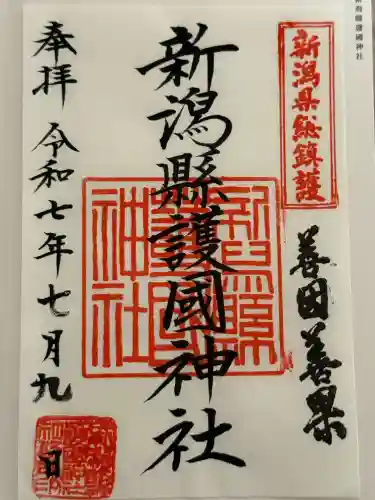 新潟縣護國神社
新潟県総鎮護
善因善果
新潟縣護國神社
奉拝 令和七年七月九日
新潟縣護國神社